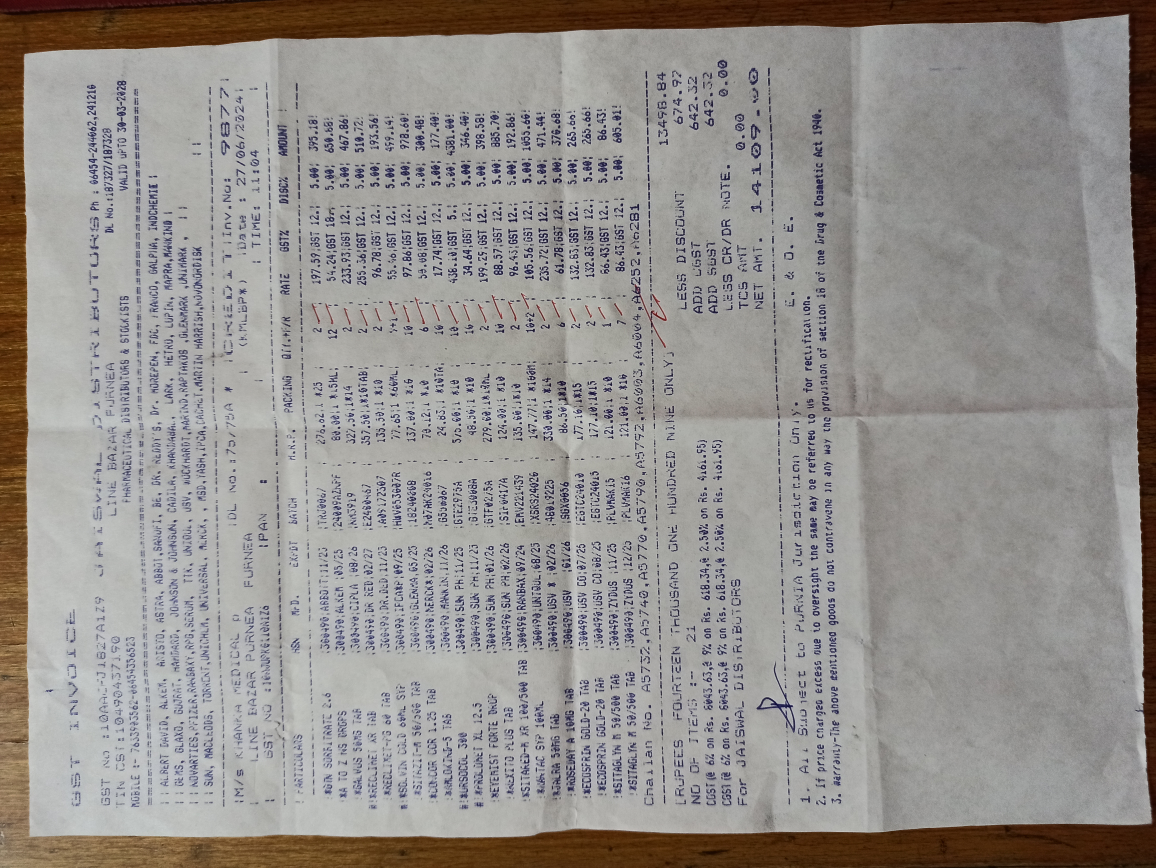 GST INVOICE
JAISWAL DISTRIBUTORS Ph : 06454-244062,241210
GST No :10AACFJ1827A1Z9
LINE BAZAR PURNEA
DL No.:187327/187328
TIN CST:10490437190
PHARMACEUTICAL DISTRIBUTORS & STOCKISTS
VALID UPTO 30-03-2028
MOBILE :- 7633993562-06454356523
ALBERT DAVID, ALKEM, ARISTO, ASTRA, ABBOT,SANOFI, BE, DR. REDDY'S, Dr. MOREPEN, FDC, FRANCO, GALPHA, INDOCHEMIE
GERMS, GLAXO, GUJRAT, MANDARD, JOHNSON & JOHNSON, CADILA, KHANDARA, LARK, HETRO, LUPIN, MAPRA,MANKIND
NOVARTIES,PFIZER,RANBAXY,RPG,SERUM, TTK, UNIQUE, USV, WOCKHARDT,MARIND,RAPTAKOS ,GLENMARK ,UNIMARK ,
SUN, MACLEODS, TORRENT,UNICHEM, UNIVERSAL, MERCK, , MSD,TASH,IPCA,CACHET,MARTIN HARRISH,NOVONORDISK
M/s KHANKA MEDICAL P DL NO.:75/75A * CREDIT Inv.No: 9877
LINE BAZAR PURNEA PURNEA (KMLBP*) Date : 27/06/2024
GST NO : IPAN : TIME: 11:04
PARTICULARS HSN Mfd. EXPDT BATCH M.R.P. PACKING Qty.+F/R RATE GST% DISC% AMOUNT
SORBITRATE 300490 ABBOT 11/25 276.62 *25 2 197.59 GST 12. 5.00 395.18
A TO Z NS DROPS 300490 ALKEM 05/25 80.00 1 *15ML 12 54.24 GST 18. 5.00 650.88
GALVUS 50MG TAB 300490 CIPLA 08/26 322.50 1*14 2 233.93 GST 12. 5.00 467.86
RECLIMET XR TAB 300490 DR RED 02/27 E240467 357.50 *10TAB 2 255.36 GST 12. 5.00 510.72
300490 DR.RED 11/25 135.50 *10 2 96.78 GST 12. 5.00 193.56
SOLVIN COLD 60ML SYP 300490 IPCA 09/25 77.65 1 *60ML 9+1 55.46 GST 12. 5.00 499.14
SITAZIT-M 50/500 TAB 300490 GLENMA 05/25 137.00 1 *10 10 97.86 GST 12. 5.00 978.60
CONCOR 1.25 TAB 300490 MERCK 02/26 70.12 1 *10 6 50.08 GST 12. 5.00 300.48
AMLODING-5 TAB 300490 MANKIN 11/26 24.83 1 *10TA 10 17.74 GST 12. 5.00 177.40
URSOCOL 300 300490 SUN PH 11/25 GTE2975A 575.00 1 *10 10 438.10 GST 5. 5.00 4381.00
PROLOMET XL 12.5 300490 SUN PH 11/25 48.50 1 *10 10 34.64 GST 12. 5.00 346.40
EYEMIST FORTE DROP 300490 SUN PH 01/26 GTF0275A 279.00 1*10ML 2 199.29 GST 12. 5.00 398.58
NEXITO PLUS TAB 300490 SUN PH 02/26 SIF0417A 124.00 1 *10 10 88.57 GST 12. 5.00 885.70
SITARED-M XR 100/500 TAB 300490 RANBAX 09/24 EMV221439 135.00 1 *10 2 96.43 GST 12. 5.00 192.86
SYP 100ML 300490 UNIQUE 08/25 XGRS24026 147.77 1 *100M 10+2 105.56 GST 12. 5.00 1055.60
JALRA 50MG TAB 300490 USV 02/26 330.00 1 *14 2 235.72 GST 12. 5.00 471.44
ROSEDAY A 10MG TAB 300490 USV 01/26 86.50 *10 6 61.78 GST 12. 5.00 370.68
ECOSPRIN GOLD-20 TAB 300490 USV CO 07/25 EGTC24010 177.10 1*15 2 132.83 GST 12. 5.00 265.66
ECOSPRIN GOLD-20 TAB 300490 USV CO 08/25 EGTC24015 177.10 1*15 2 132.83 GST 12. 5.00 265.66
SITAGLYN M 50/500 TAB 300490 ZYDUS 11/25 121.00 1 *10 1 86.43 GST 12. 5.00 86.43
SITAGLYN M 50/500 TAB 300490 ZYDUS 12/25 121.00 1 *10 7 86.43 GST 12. 5.00 605.01
Challan No. A5732,A5740,A5770,A5790,A5792,A6003,A6004,A6252,A6281
13498.84
(RUPEES FOURTEEN THOUSAND ONE HUNDRED NINE ONLY) LESS DISCOUNT 674.92
NO OF ITEMS :- 21 ADD CGST 642.32
CGST@ 6% on Rs. 6043.63,@ 9% on Rs. 618.34,@ 2.50% on Rs. 4161.95) ADD SGST 642.32
CGST@ 6% on Rs. 6043.63,@ 9% on Rs. 618.34,@ 2.50% on Rs. 4161.95) LESS CR/DR NOTE. 0.00
For JAISWAL DISTRIBUTORS TCS AMT 0.00
NET AMT. 14109.00
E. & O. E.
1. All Subject to PURNIA Jurisdiction Only.
2. if price charged excess due to oversight the same may be referred to us for rectification.
3. Warranty-The above mentioned goods do not contravene in any way the provision of section 18 of the Drug & Cosmetic Act 1940.